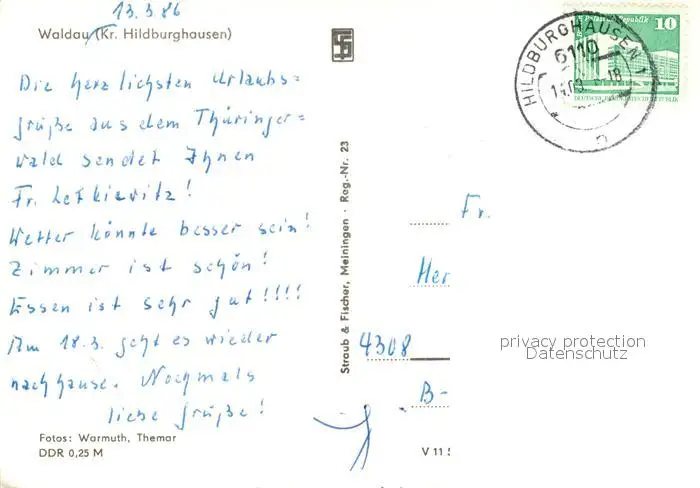 13.3.86
Waldau (Kr. Hildburghausen)
Die herzlichsten Urlaubs=
grüße aus dem Thüringer=
wald sendet Ihnen
Fr.
Wetter könnte besser sein!
Zimmer ist schön!
Essen ist sehr gut!!!!
Am 18.3. geht es wieder
nachhause. Nochmals
liebe Grüße!
Fotos: Warmuth, Themar
DDR 0,25 M
Straub & Fischer, Meiningen · Reg.-Nr. 23
HILDBURGHAUSEN 1
6110
10
Fr.
Her
4308
B-
V 11 5
privacy protection
Datenschutz